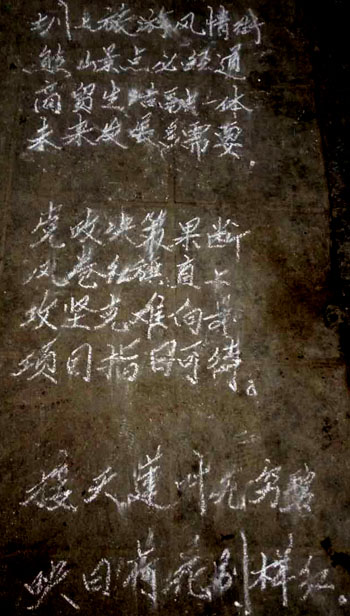 圳上旅游风情街
熊山景点必经通
商贸生活融一体
未来发展多需要。
党政决策果断
风卷红旗直上
攻坚克难向前
项目指日可待。
接天莲叶无穷碧
映日荷花别样红。